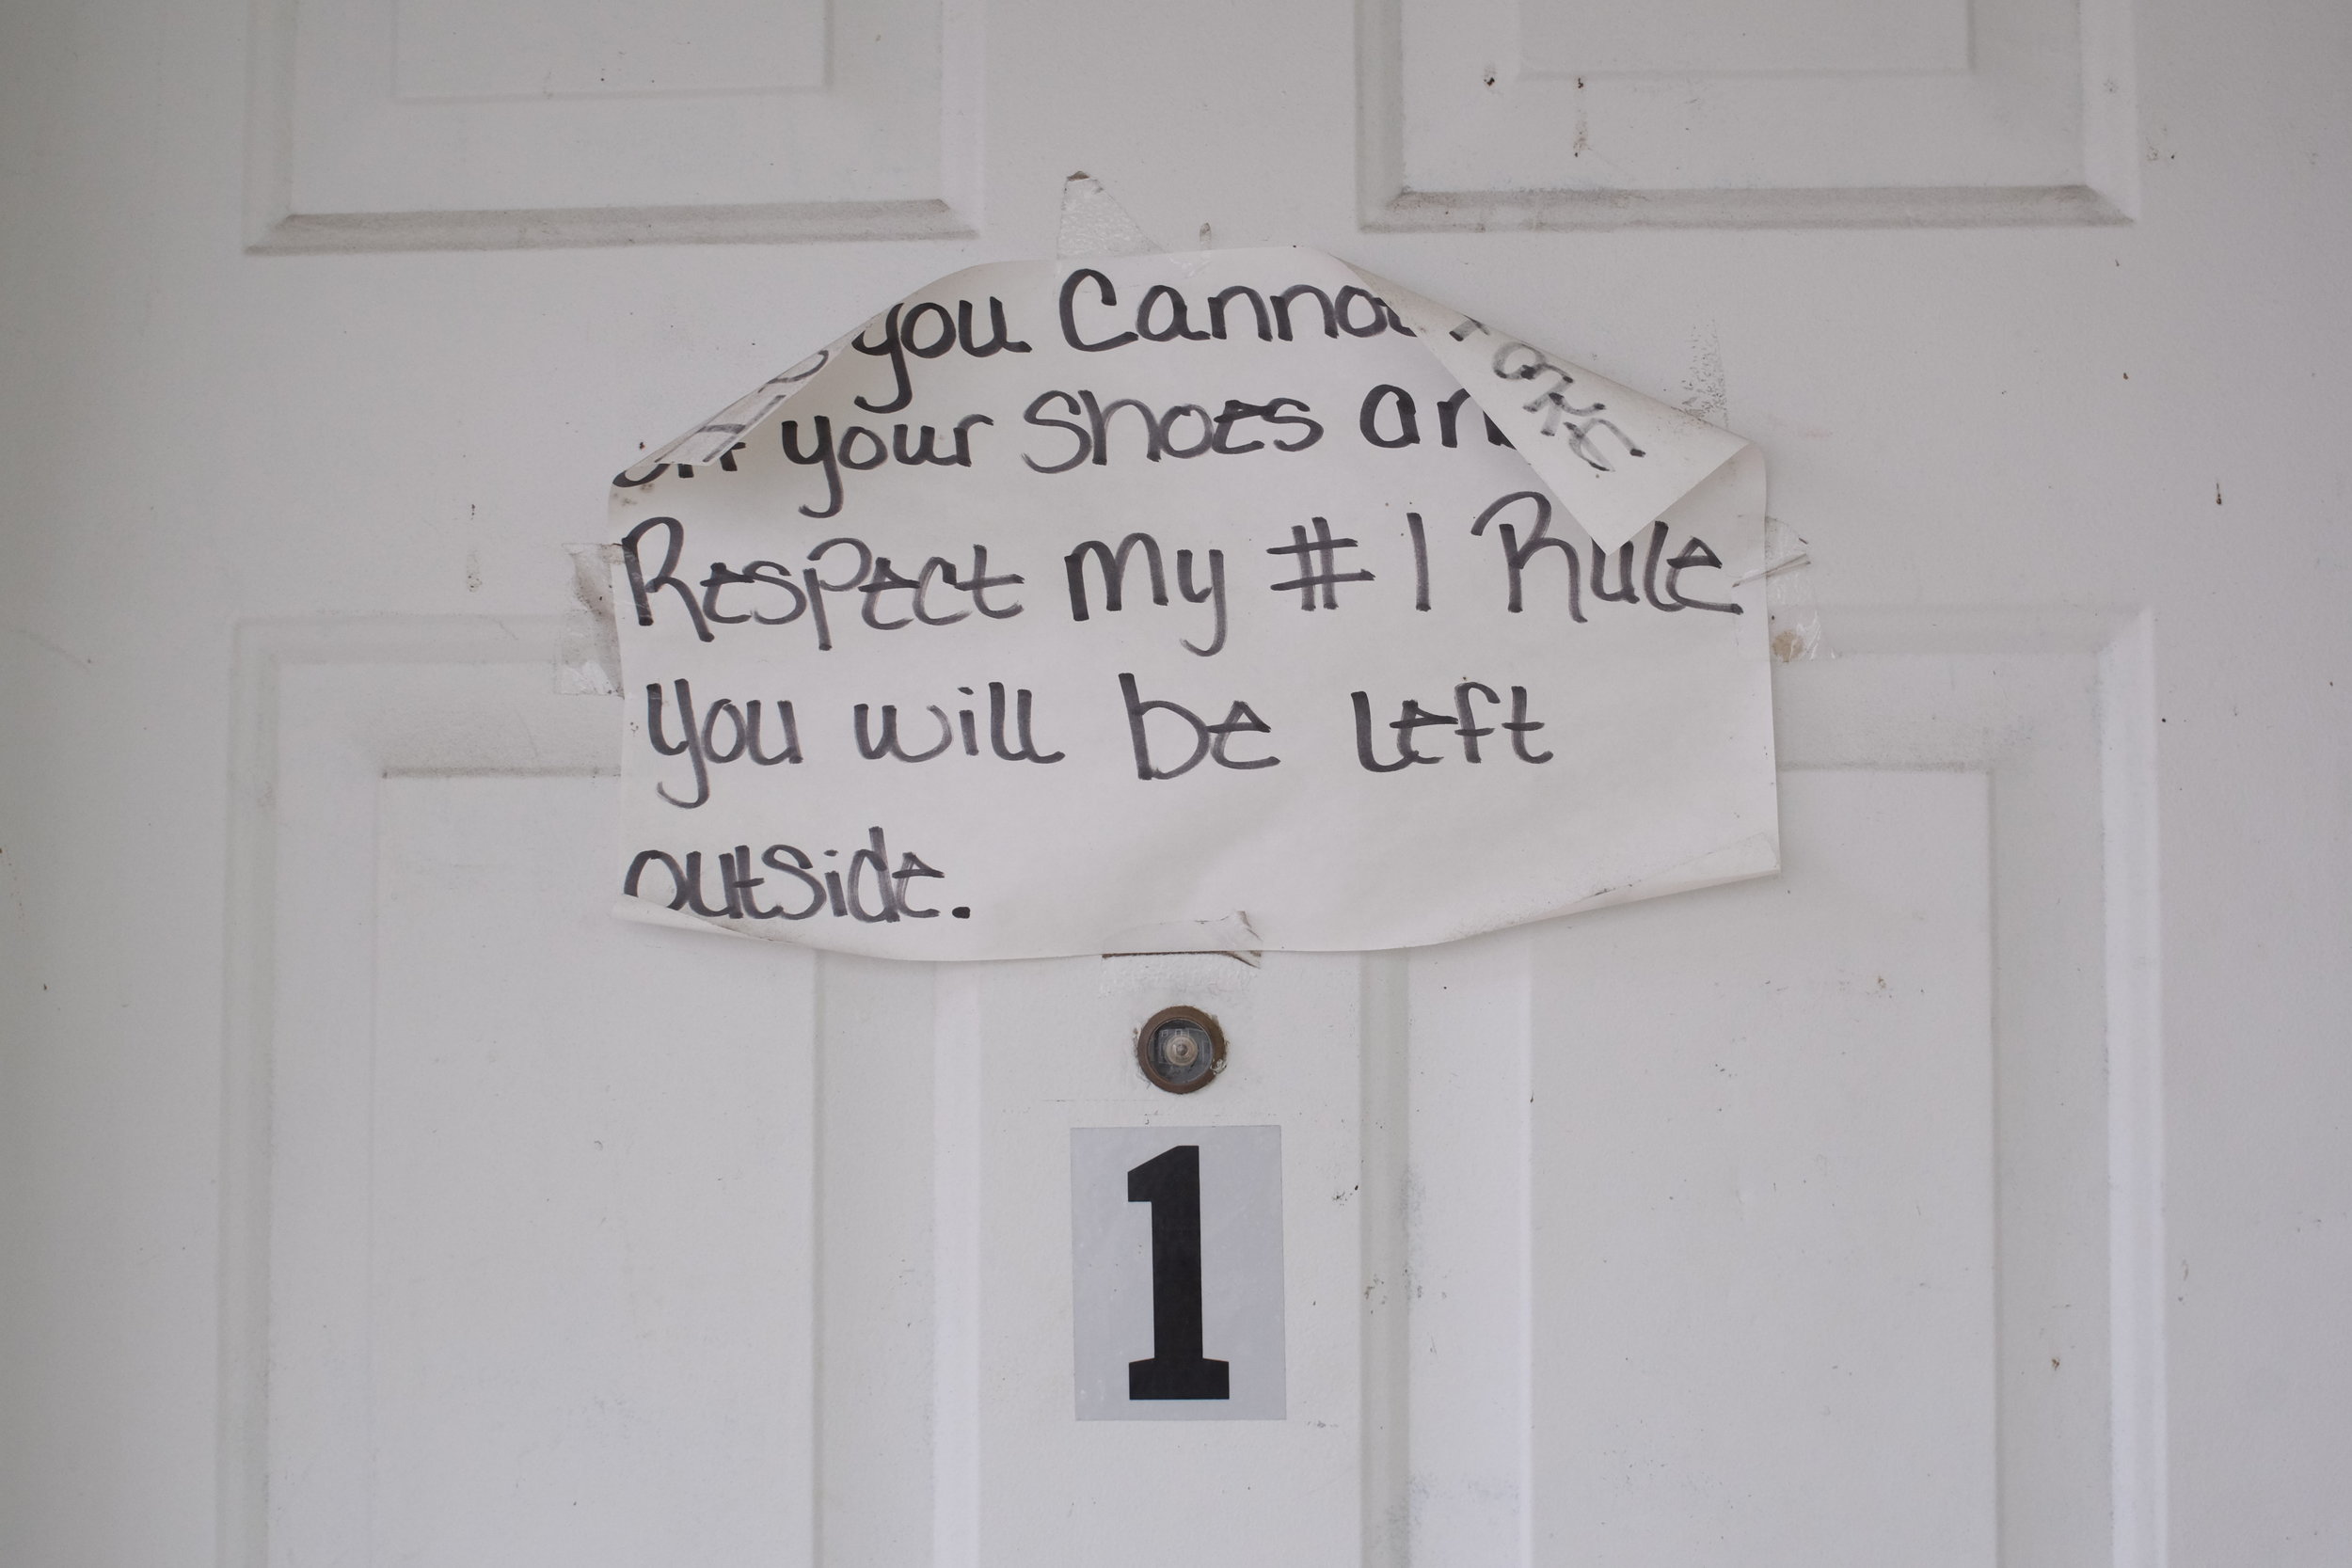 you Canno
off your Shoes an
Respect my # 1 Rule
you will be left
outside.
1